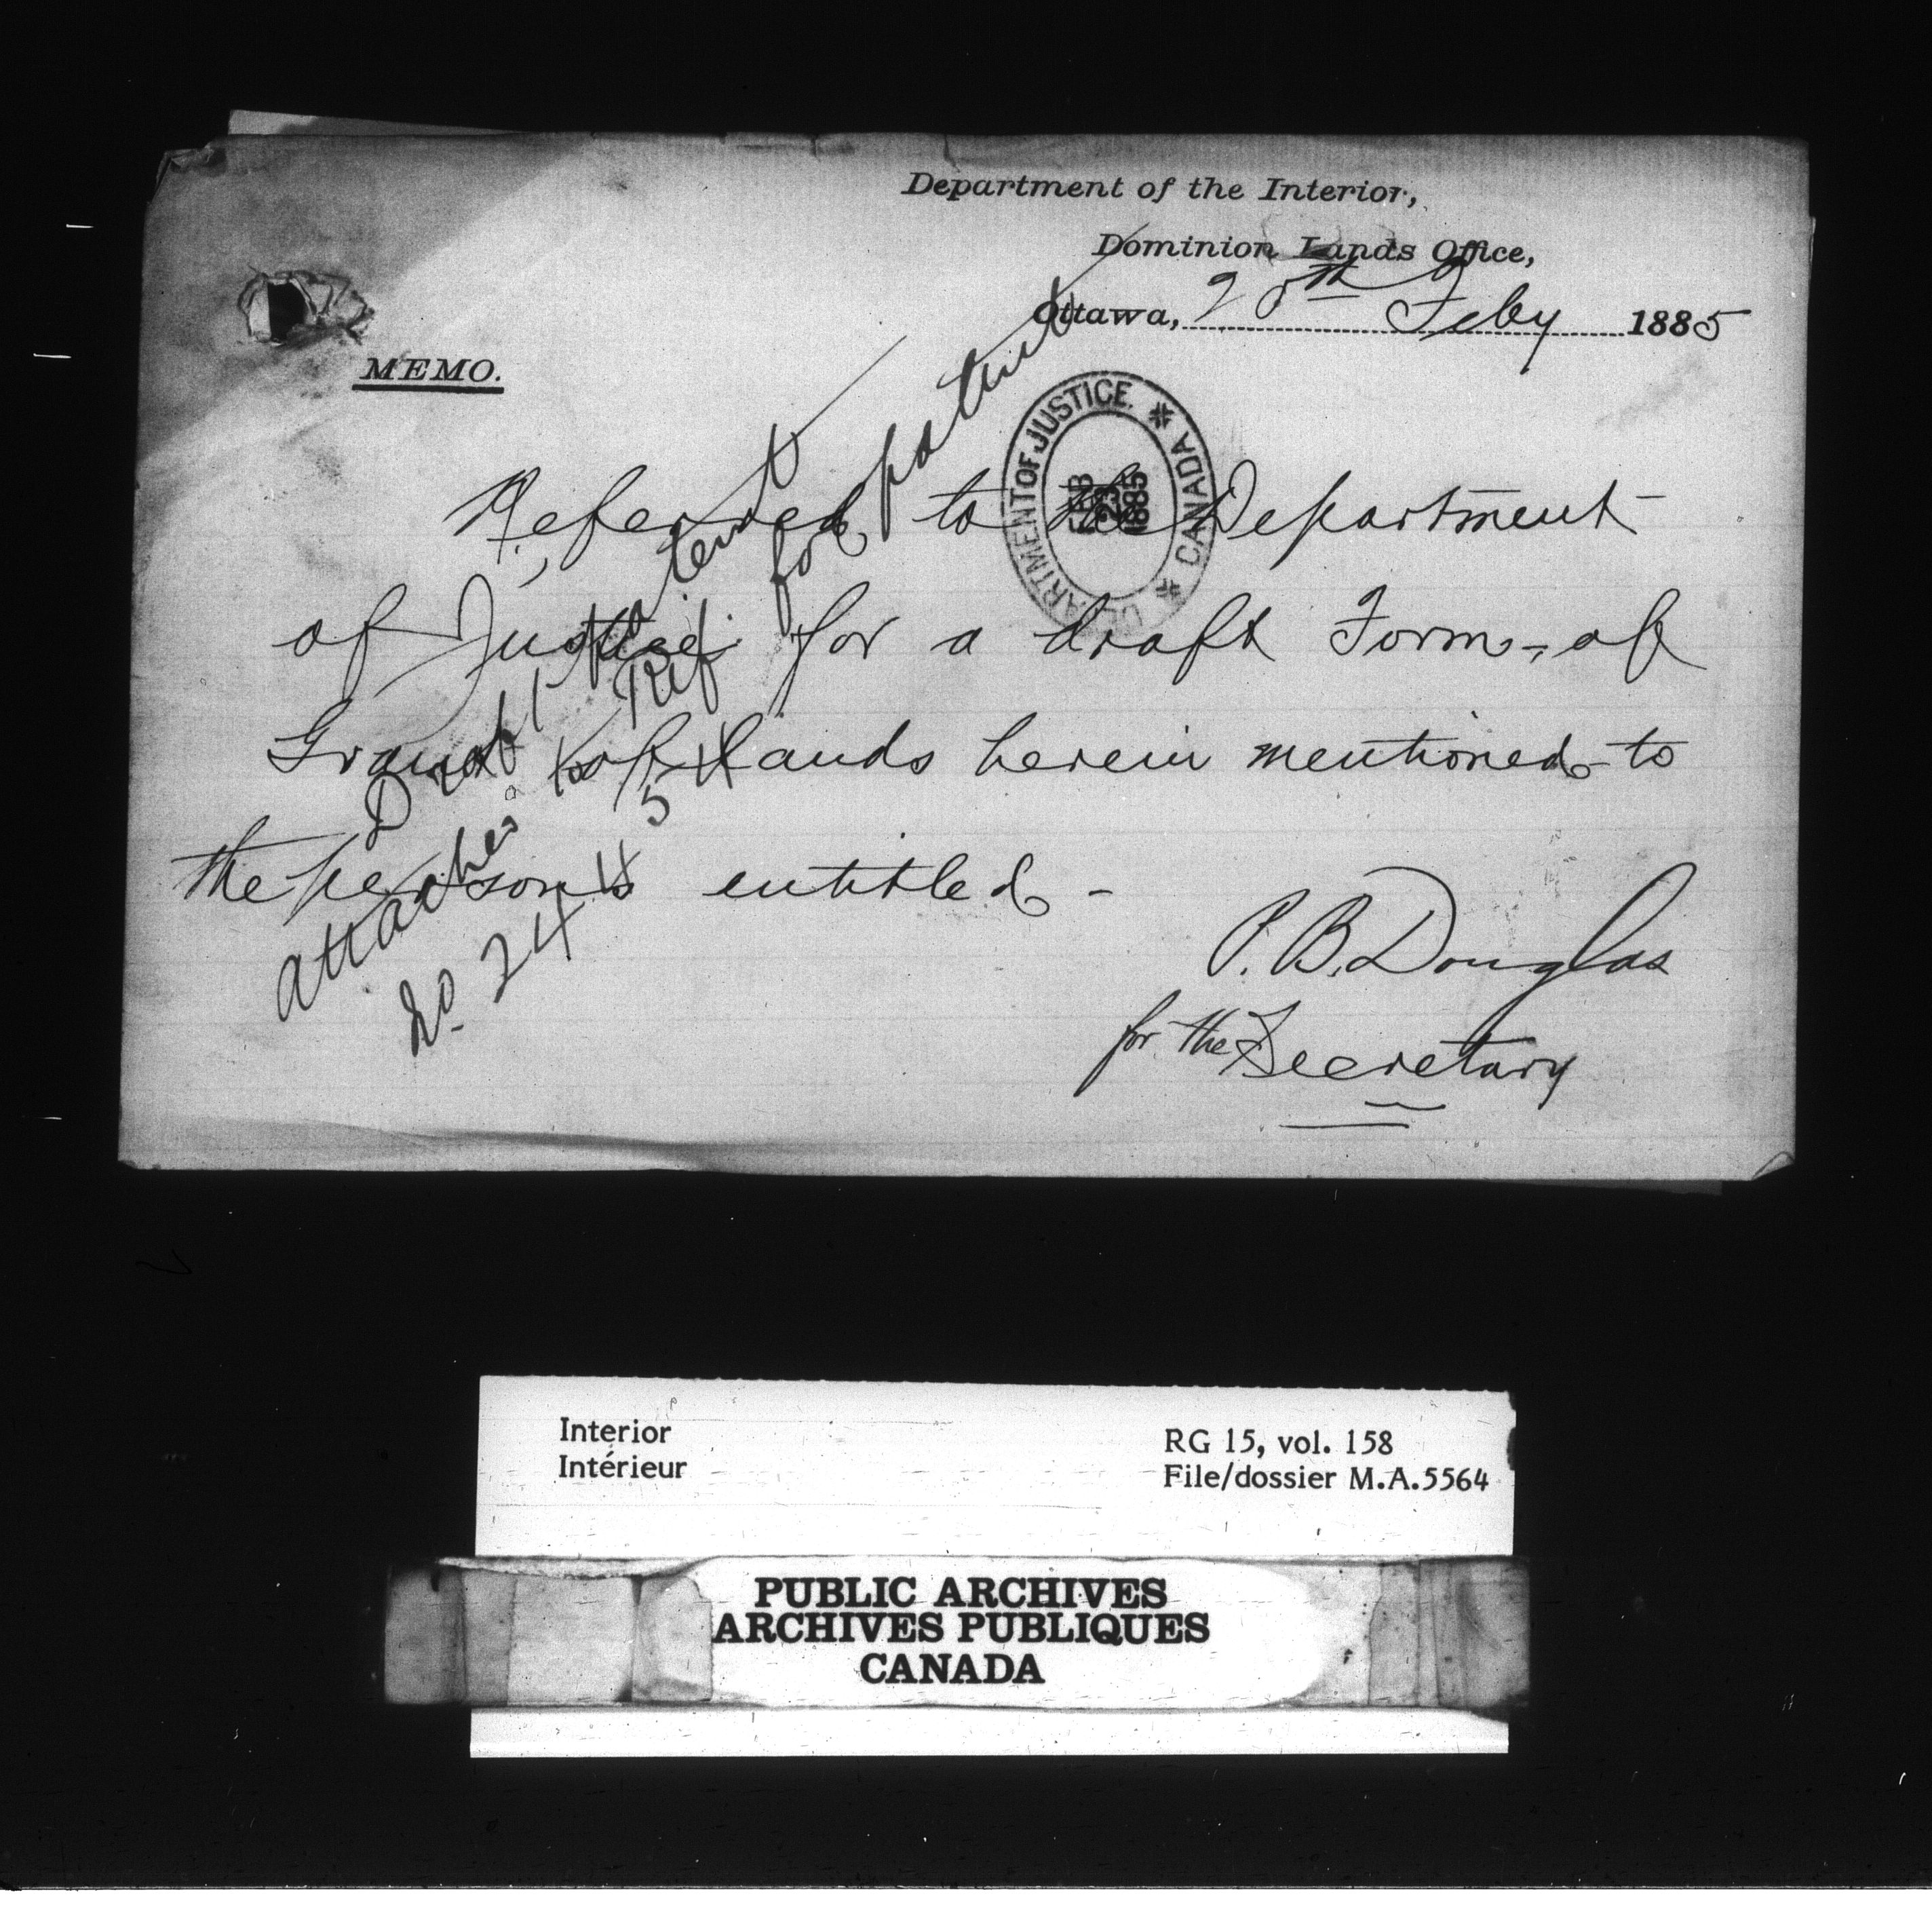 Department of the Interior,
Dominion Lands Office,
Ottawa, 20th Feby 1885
MEMO.
DEPARTMENT OF JUSTICE. * CANADA *
FEB
23
1885
Referred to the Department
of Justice for a draft Form of
Grant of lands herein mentioned to
the persons entitled -
P. B. Douglas
for the Secretary
Draft Patent
attached to Ref for patent
No 24454
Interior
Intérieur
RG 15, vol. 158
File/dossier M.A.5564
PUBLIC ARCHIVES
ARCHIVES PUBLIQUES
CANADA